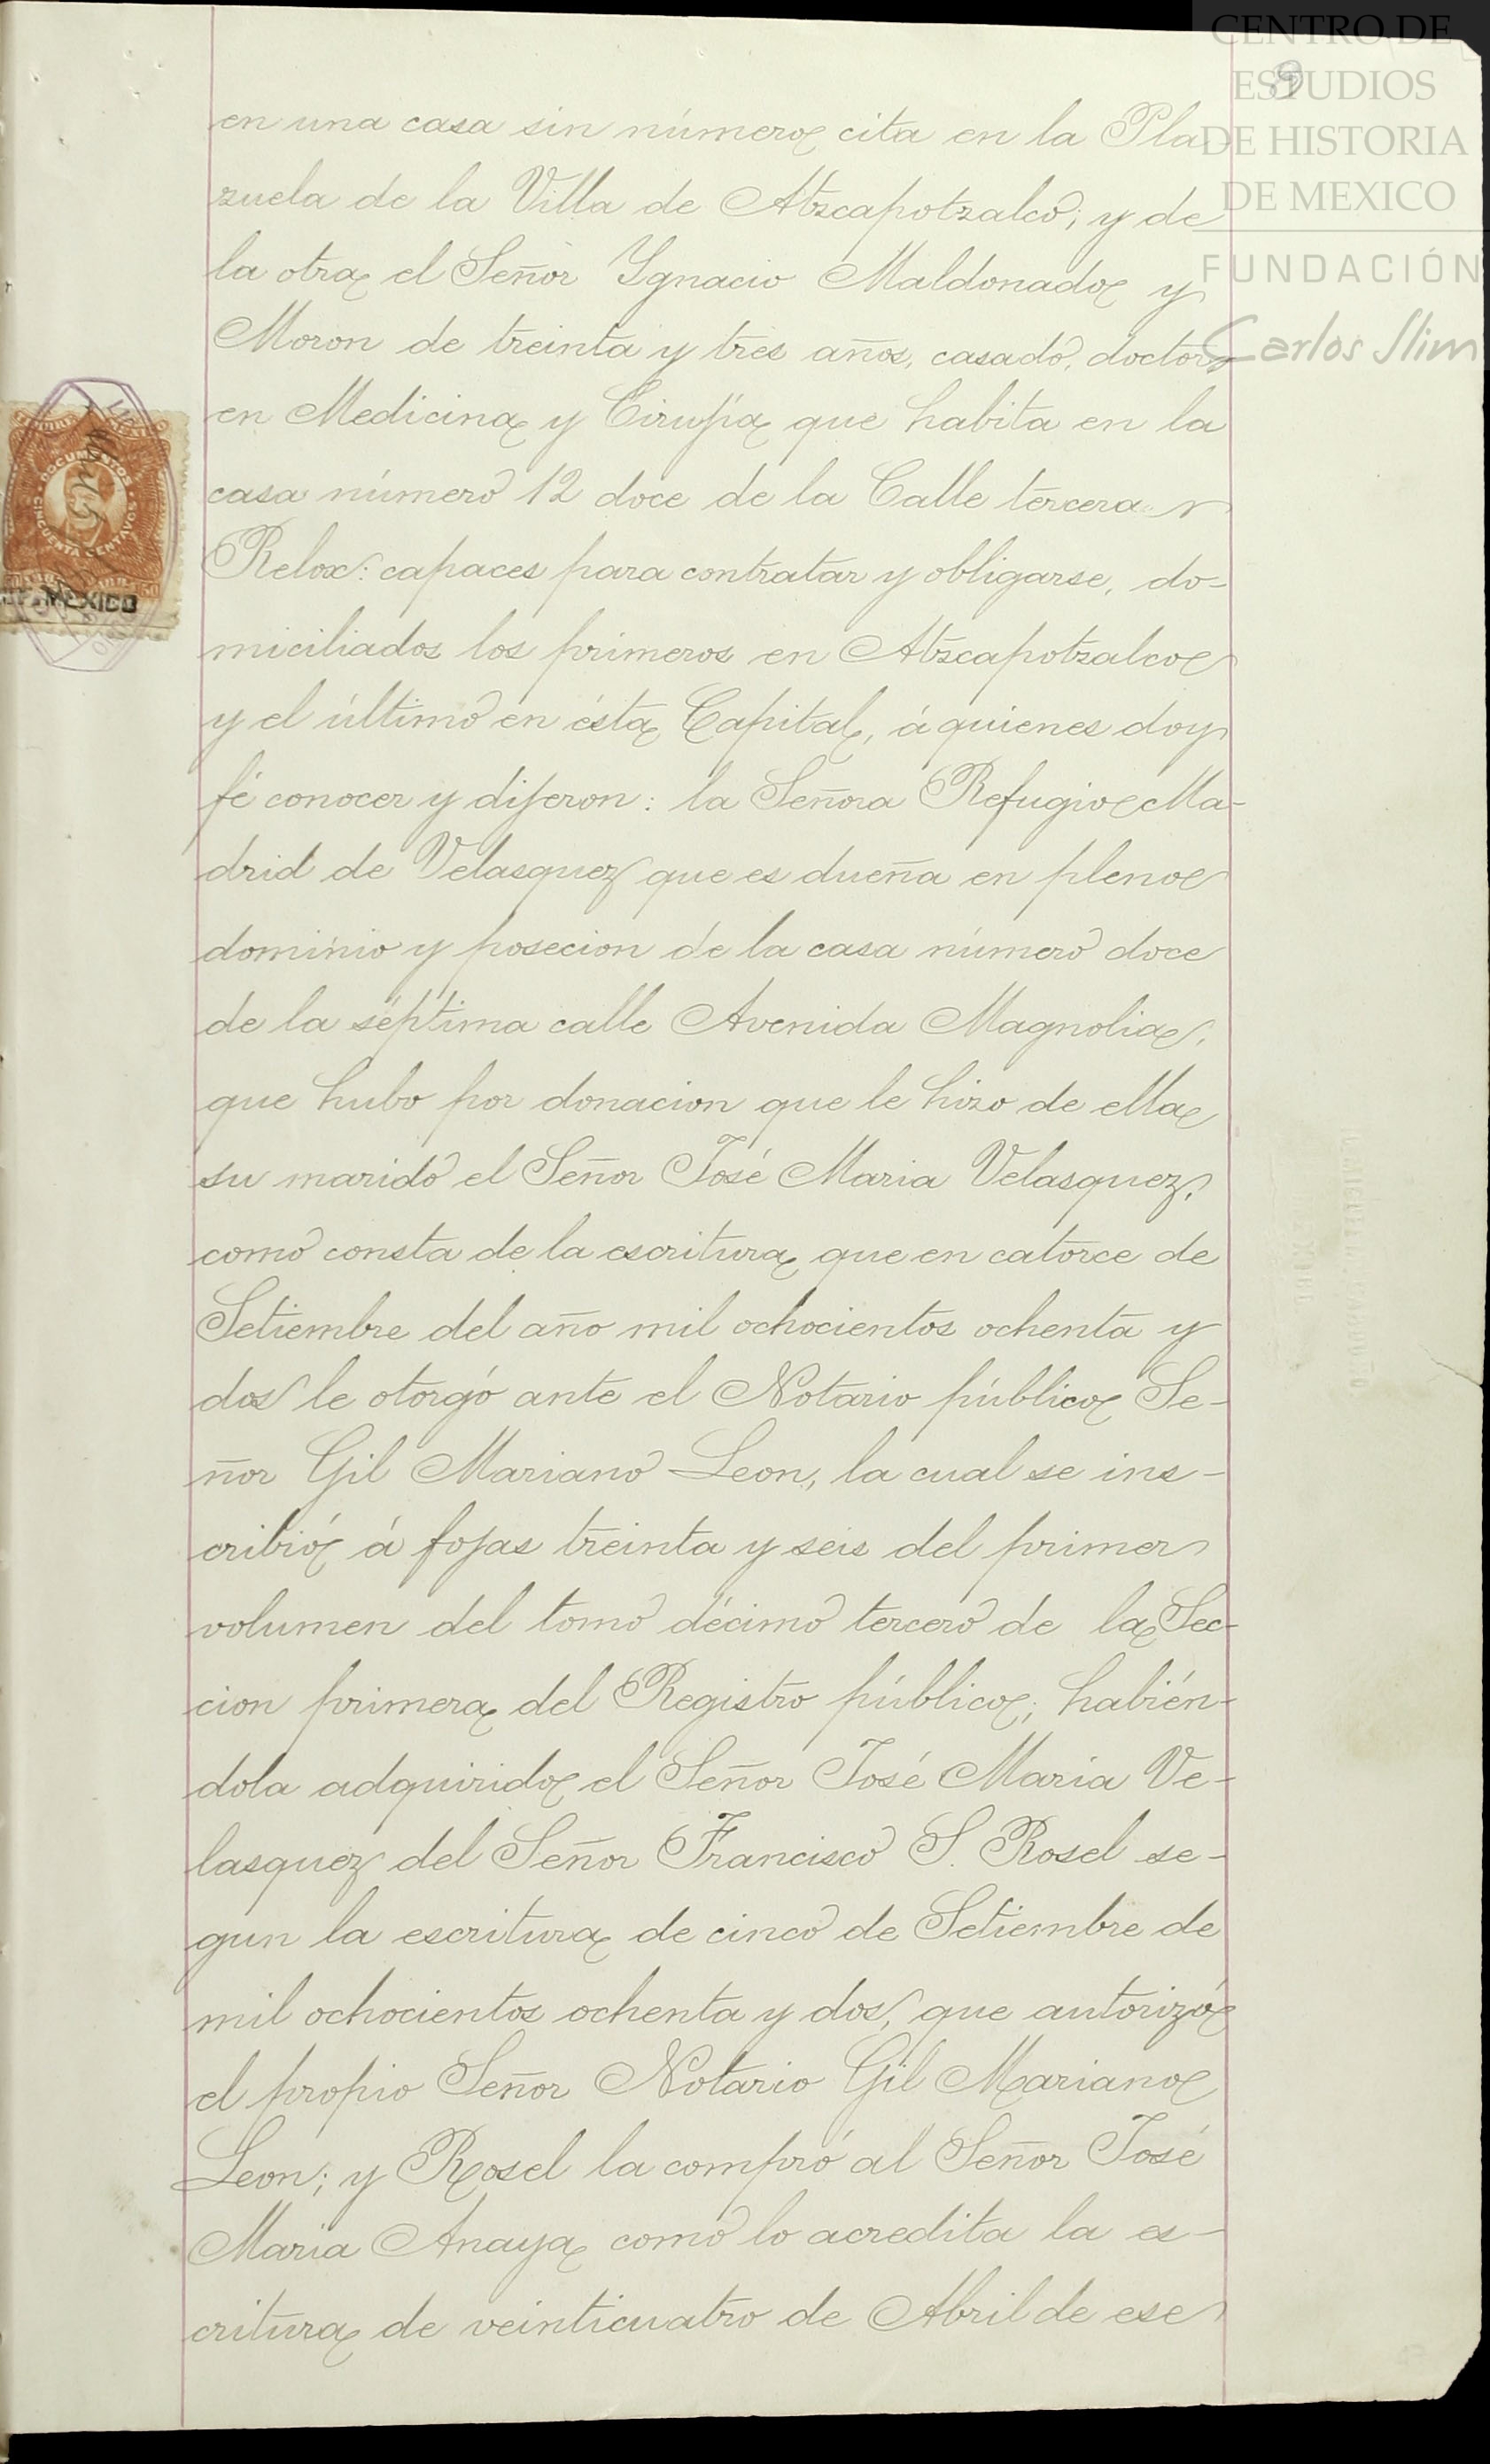 CENTRO DE
ESTUDIOS
DE HISTORIA
DE MEXICO
FUNDACIÓN
Carlos Slim
9
en una casa sin número cita en la Pla-
zuela de la Villa de Atzcapotzalco; y de
la otra el Señor Ygnacio Maldonado y
Moron de treinta y tres años, casado, doctor
en Medicina y Cirujía que habita en la
casa número 12 doce de la Calle tercera
Relox: capaces para contratar y obligarse, do-
miciliados los primeros en Atzcapotzalco
y el último en ésta Capital, á quienes doy
fé conocer y dijeron: la Señora Refugio Ma-
drid de Velasquez que es dueña en pleno
dominio y posecion de la casa número doce
de la séptima calle Avenida Magnolia,
que hubo por donacion que le hizo de ella
su marido el Señor José Maria Velasquez,
como consta de la escritura que en catorce de
Setiembre del año mil ochocientos ochenta y
dos le otorgó ante el Notario público Se-
ñor Gil Mariano Leon, la cual se ins-
cribió á fojas treinta y seis del primer
volumen del tomo décimo tercero de la Sec-
cion primera del Registro público; habién-
dola adquirido el Señor José Maria Ve-
lasquez del Señor Francisco S. Rosel se-
gun la escritura de cinco de Setiembre de
mil ochocientos ochenta y dos, que autorizó
el propio Señor Notario Gil Mariano
Leon; y Rosel la compró al Señor José
Maria Anaya como lo acredita la es-
critura de veinticuatro de Abril de ese
DOCUMENTOS
CINCUENTA CENTAVOS
50
MEXICO